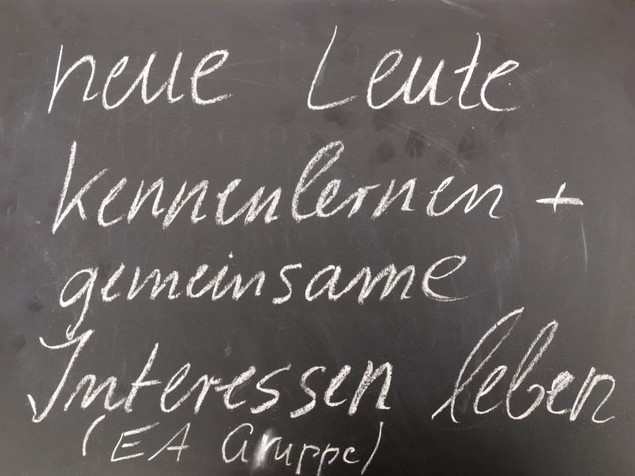 neue Leute
kennenlernen +
gemeinsame
Interessen leben
(EA Gruppe)